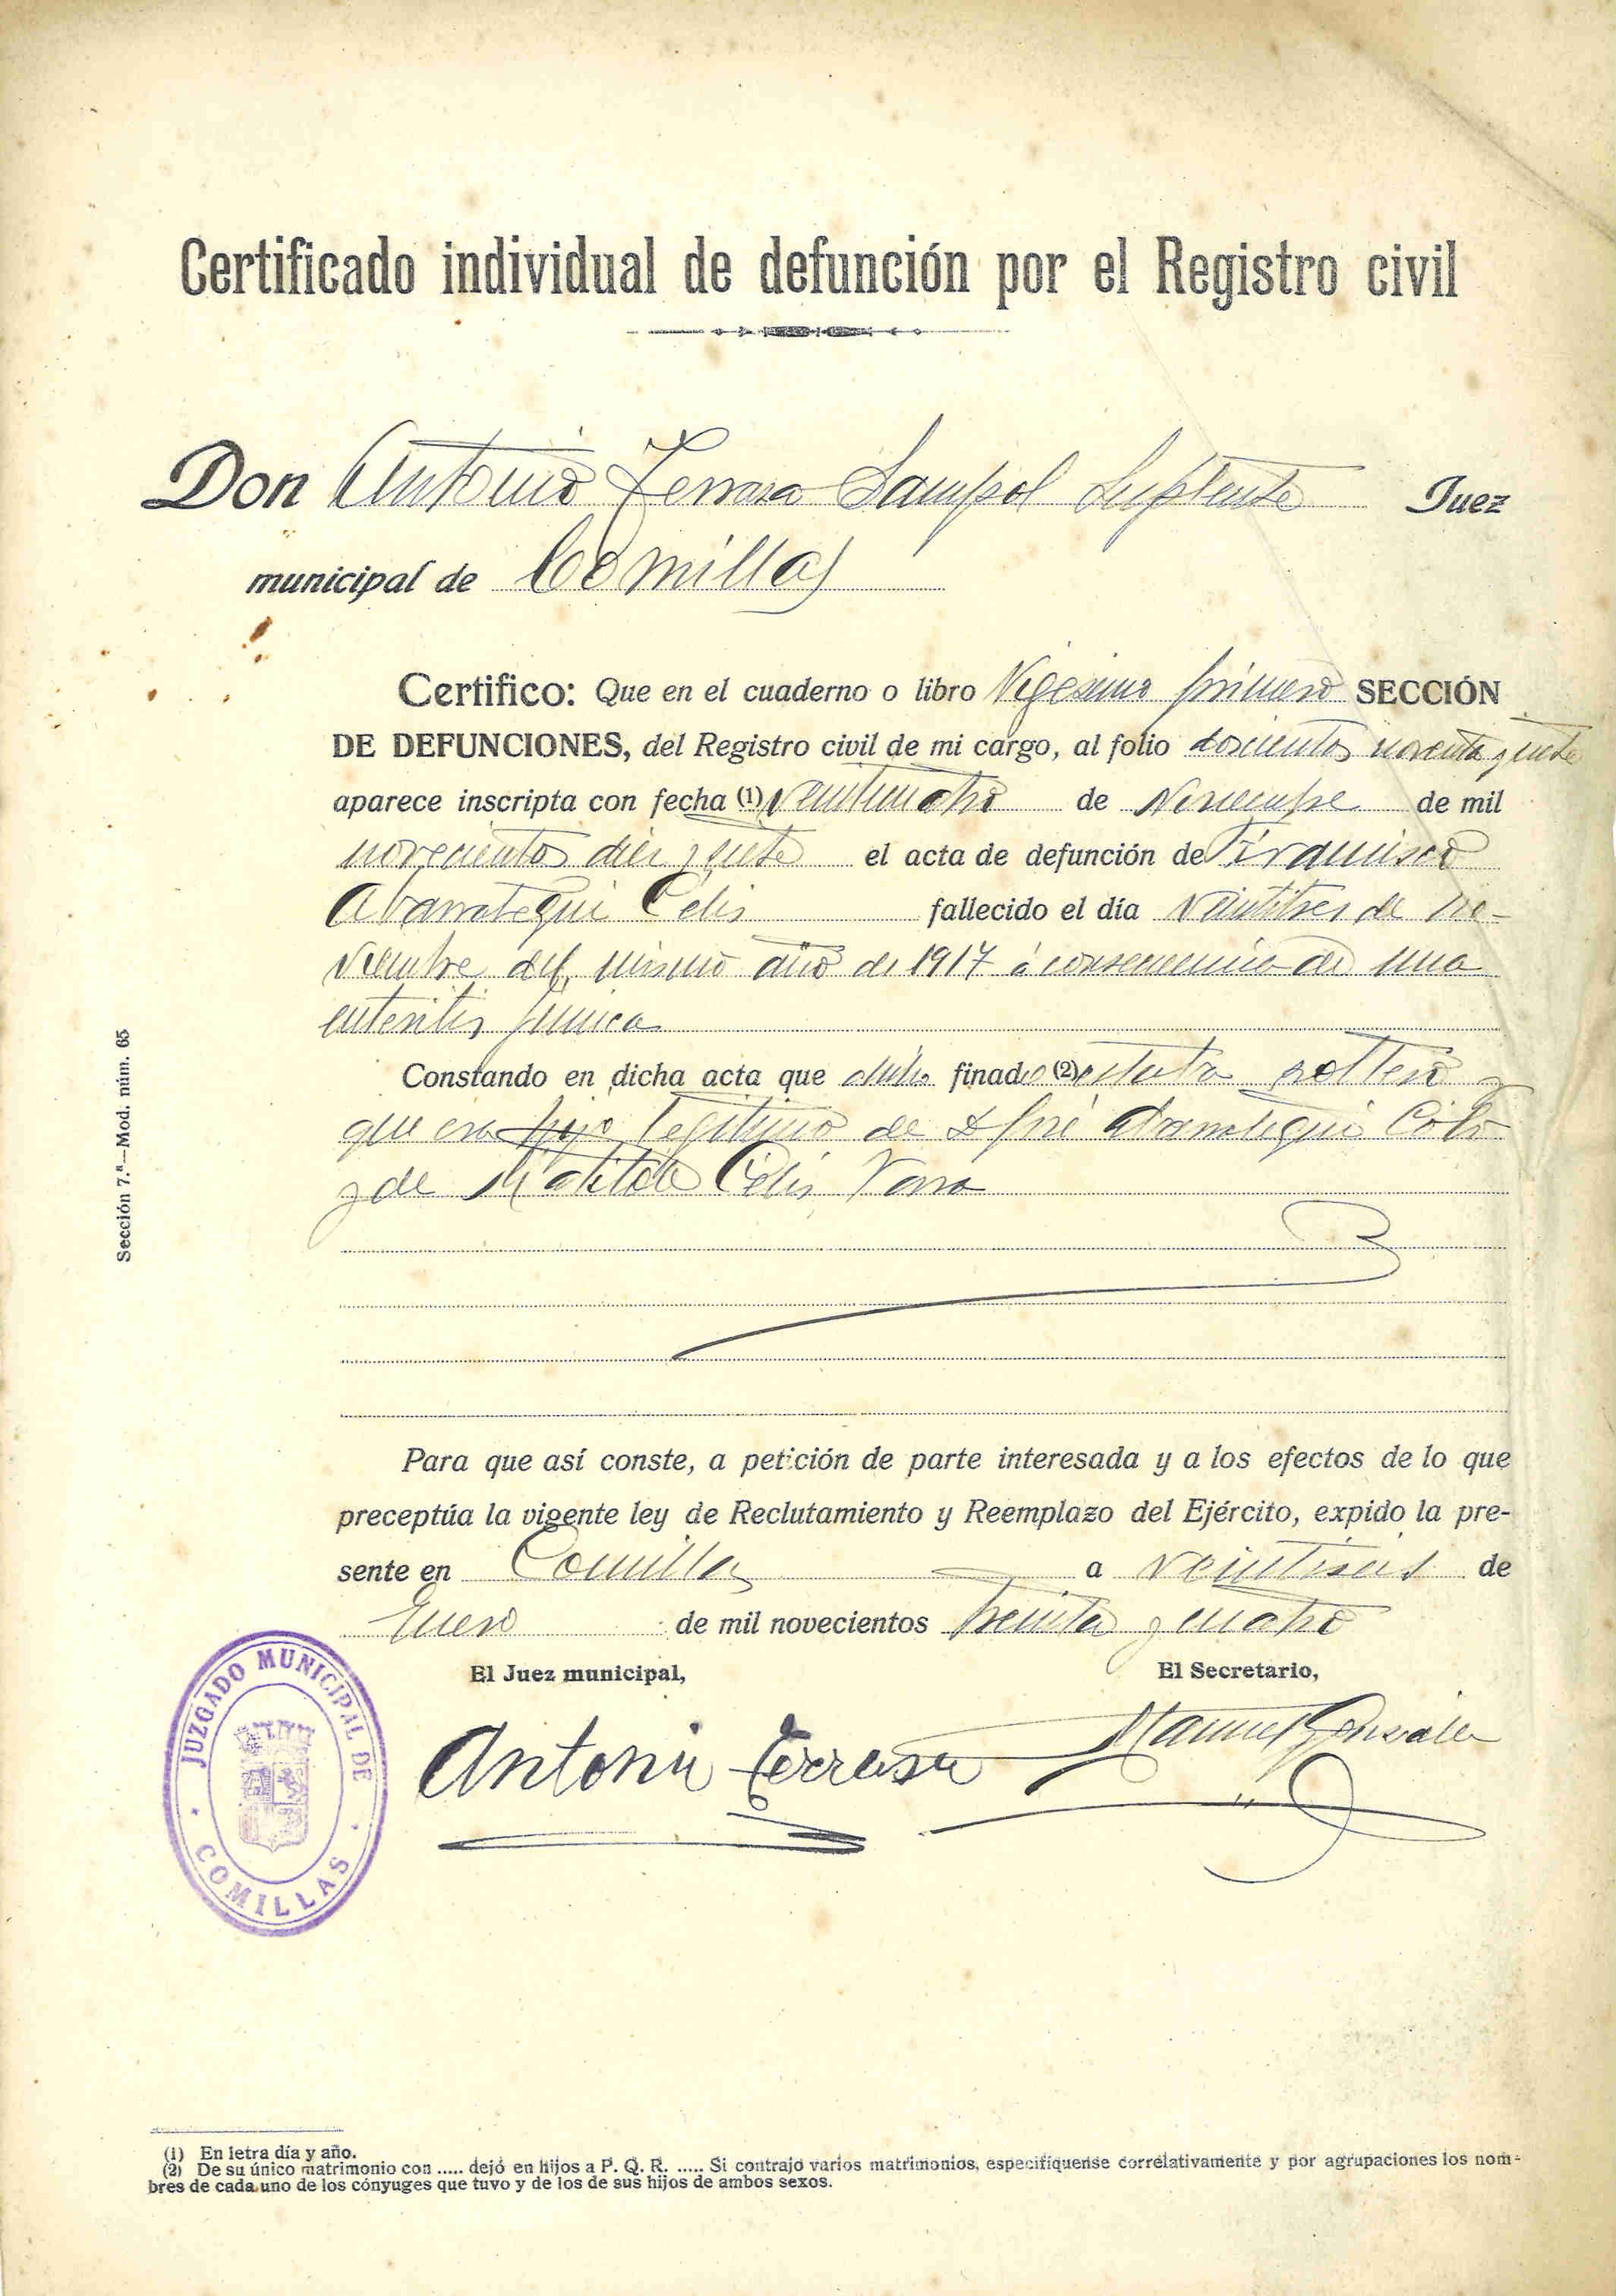 Certificado individual de defunción por el Registro civil
Don Antonio Terrasa Sampol Suplente Juez
municipal de Comillas
Certifico: Que en el cuaderno o libro Vigesimo primero SECCIÓN
DE DEFUNCIONES, del Registro civil de mi cargo, al folio doscientos noventa y siete
aparece inscripta con fecha (1) veinticuatro de Noviembre de mil
novecientos diez y siete el acta de defunción de Francisco
Abarrategui Celis fallecido el día veintitres de No-
viembre del mismo año de 1917 á consecuencia de una
enteritis
Constando en dicha acta que dicho finado (2) estaba soltero y
que era hijo legitimo de D José Abarrategui Cobo
y de Matilde Celis
Para que así conste, a petición de parte interesada y a los efectos de lo que
preceptúa la vigente ley de Reclutamiento y Reemplazo del Ejército, expido la pre-
sente en Comillas a veintiseis de
Enero de mil novecientos treinta y cuatro
El Juez municipal, El Secretario,
Antonio Terrasa Manuel Gonzalez
JUZGADO MUNICIPAL DE COMILLAS
Sección 7.ª—Mod. núm. 65
(1) En letra día y año.
(2) De su único matrimonio con ..... dejó en hijos a P. Q. R. ..... Si contrajo varios matrimonios, especifíquense correlativamente y por agrupaciones los nom-
bres de cada uno de los cónyuges que tuvo y de los de sus hijos de ambos sexos.